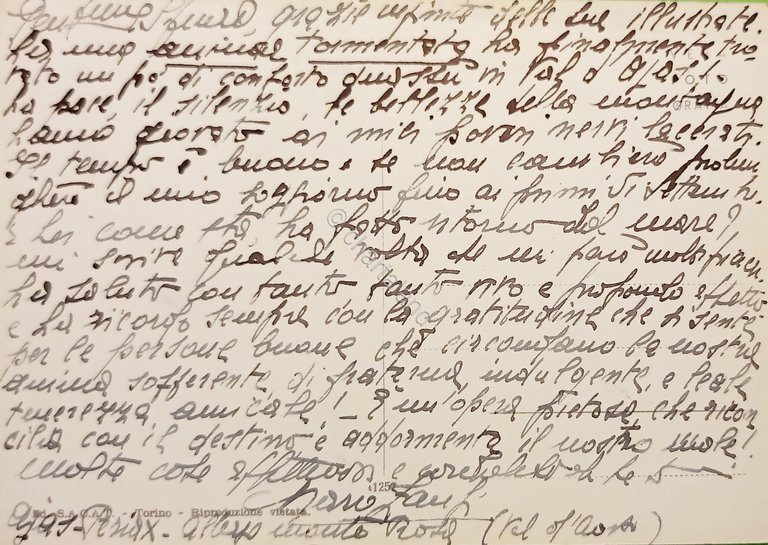 Gent.ma Signora grazie infinite delle sue illustrate.
La mia anima tormentata ha finalmente tro-
vato un po' di conforto quassù in Val d'Ajas.
La pace, il silenzio, le bellezze della montagna
hanno giovato ai miei poveri nervi lacerati.
Il tempo è buono e se non cambierà prolun-
gherò il mio soggiorno fino ai primi di Settembre.
E Lei come sta, ha fatto ritorno dal mare?
Mi scriva qualche volta che mi farà molto piacere.
La saluto con tanto tanto vivo e profondo affetto
e La ricordo sempre con la gratitudine che si sente
per le persone buone che circondano la nostra
anima sofferente di fraterna, indulgente, e leale
tenerezza amicale! - È un'opera pietosa che ricon
cilia con il destino e addormenta il nostro male!
Molte cose affettuose e
1257
Ed. S.A.C.A.T. - Torino - Riproduzione vietata
Ajas-Periax - Albergo Monte Rosa (Val d'Aosta)
FOTO
© cartolina